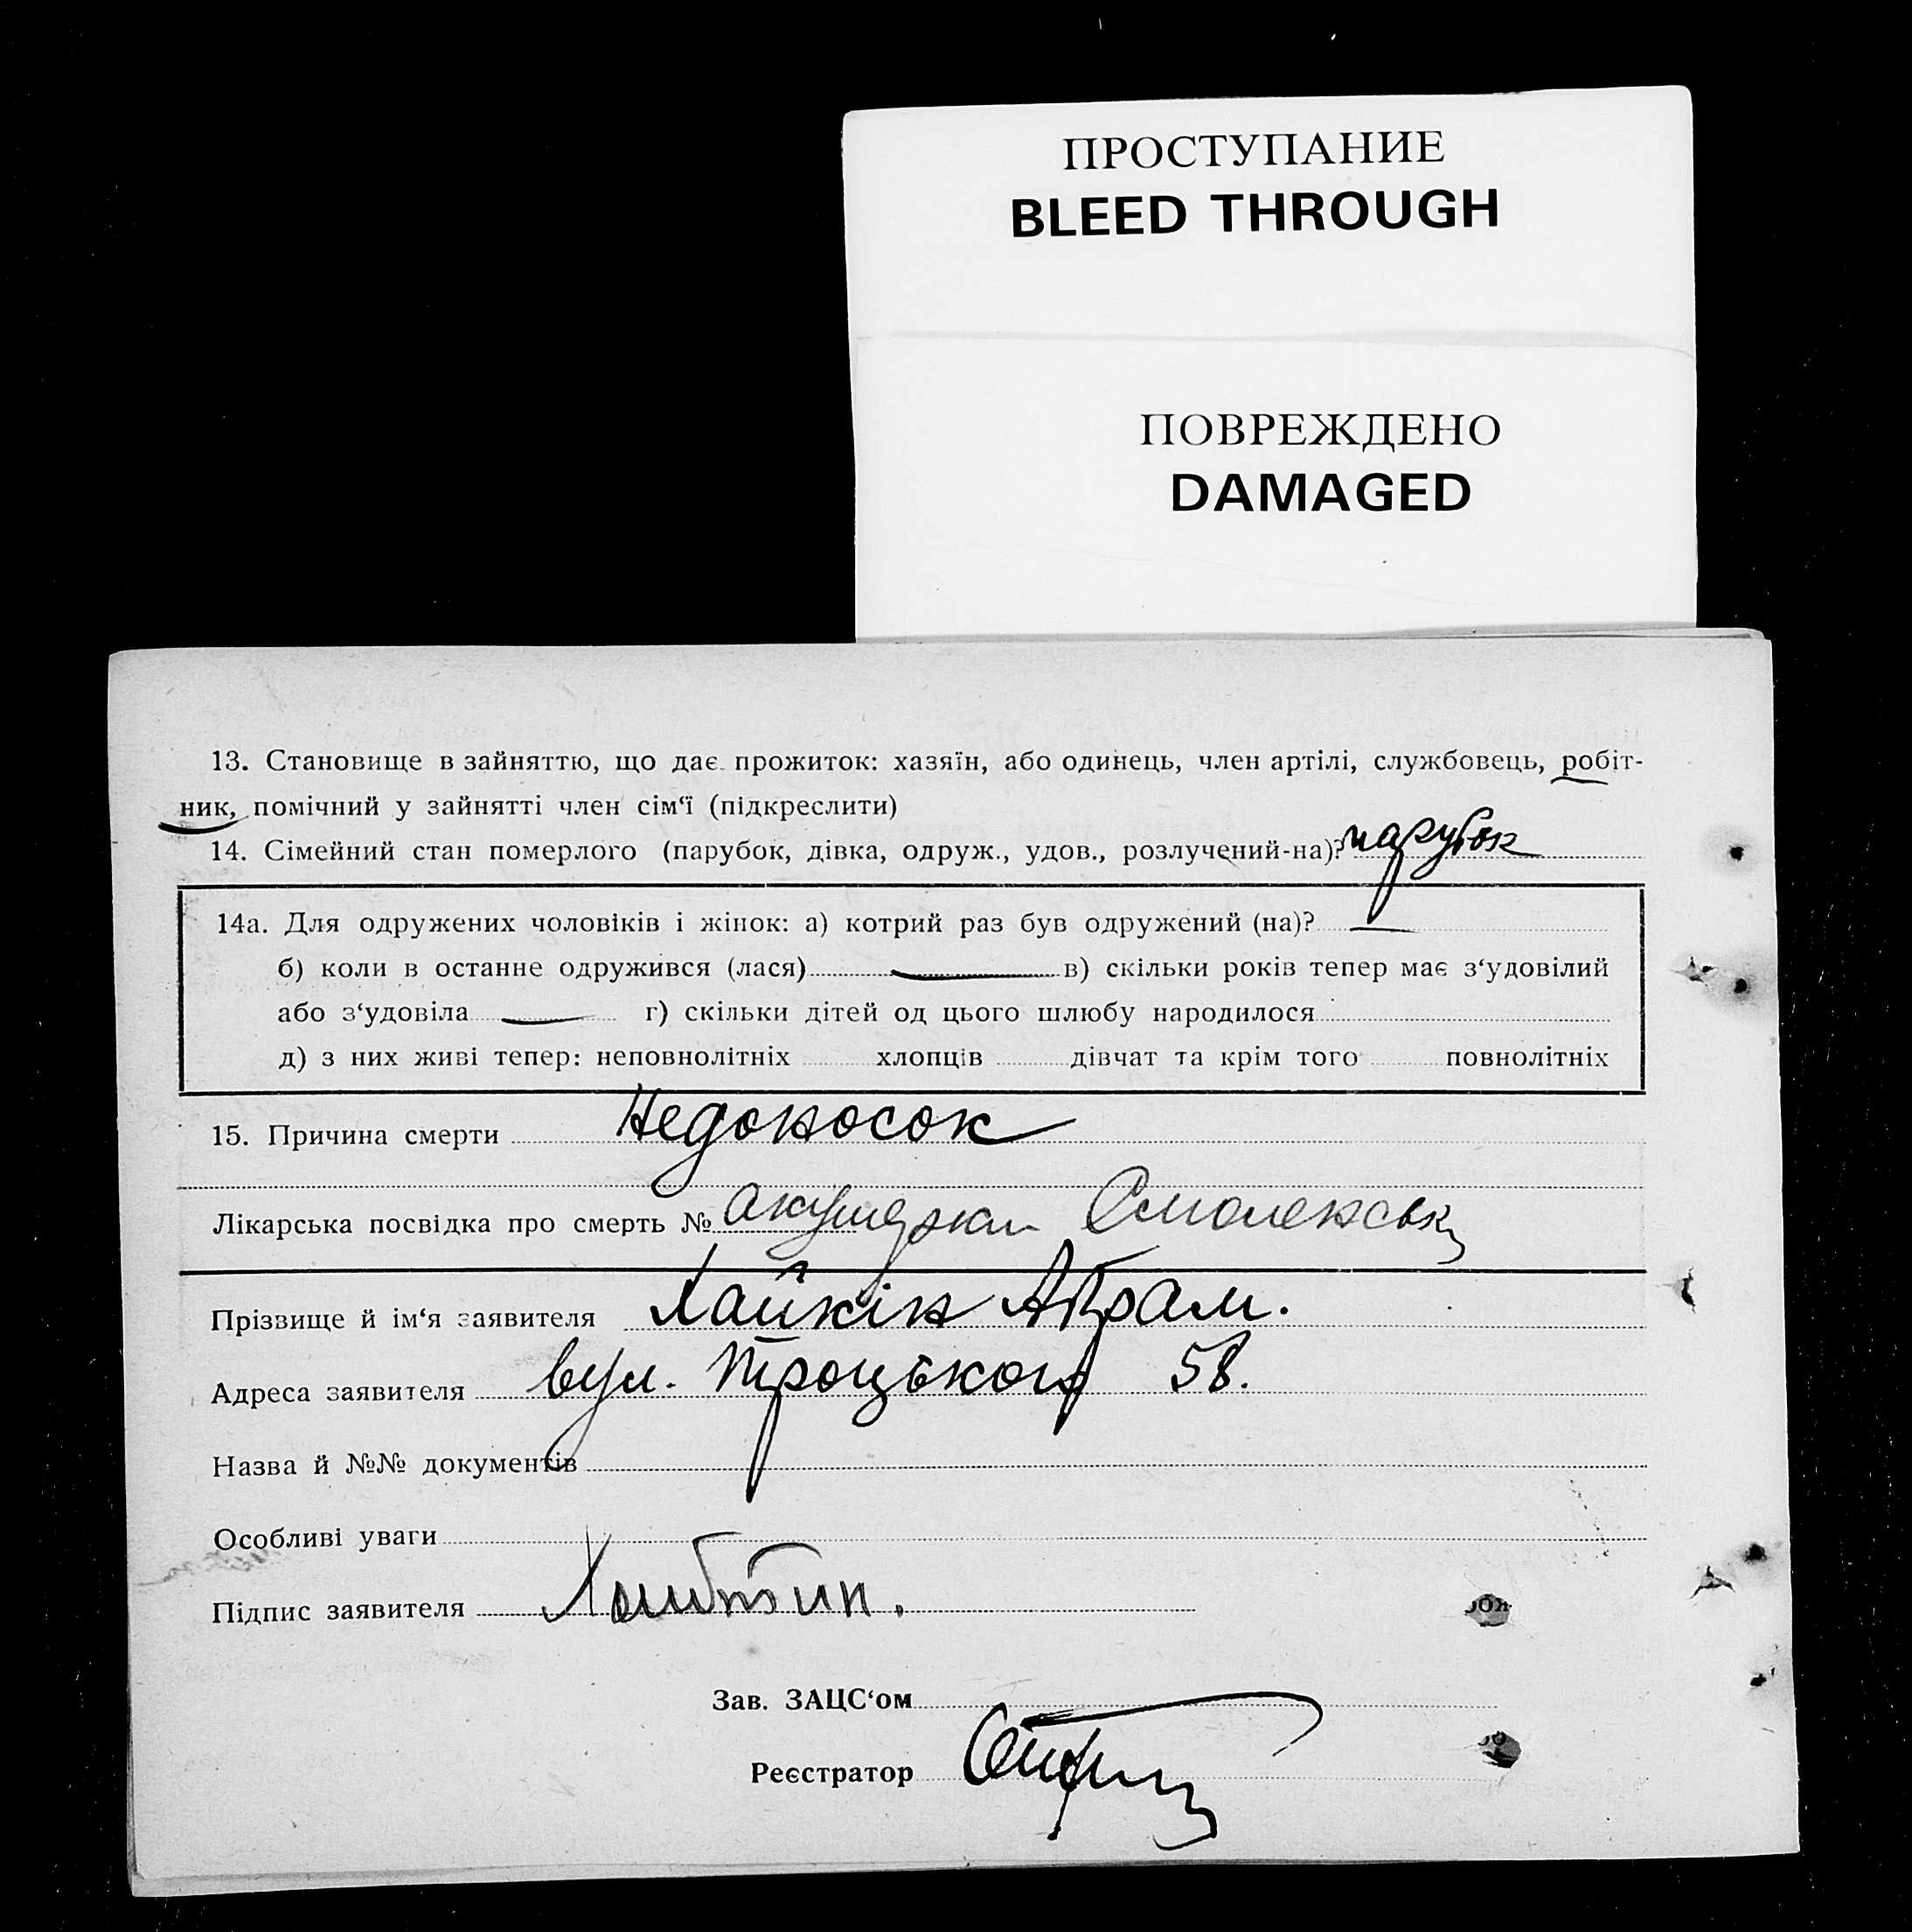 ПРОСТУПАНИЕ
BLEED THROUGH
ПОВРЕЖДЕНО
DAMAGED
13. Становище в зайняттю, що дає прожиток: хазяїн, або одинець, член артілі, службовець, робіт-
ник, помічний у зайнятті член сім‘ї (підкреслити)
14. Сімейний стан померлого (парубок, дівка, одруж., удов., розлучений-на)? парубок
14а. Для одружених чоловіків і жінок: а) котрий раз був одружений (на)? —
б) коли в останне одружився (лася) — в) скільки років тепер має з‘удовілий
або з‘удовіла — г) скільки дітей од цього шлюбу народилося
д) з них живі тепер: неповнолітніх хлопців дівчат та крім того повнолітніх
15. Причина смерти Недоносок
Лікарська посвідка про смерть № акушерки Смоленськ
Прізвище й ім‘я заявителя Хайкін Абрам.
Адреса заявителя вул. Троцького 58.
Назва й №№ документів
Особливі уваги
Підпис заявителя
Зав. ЗАЦС‘ом
Реєстратор